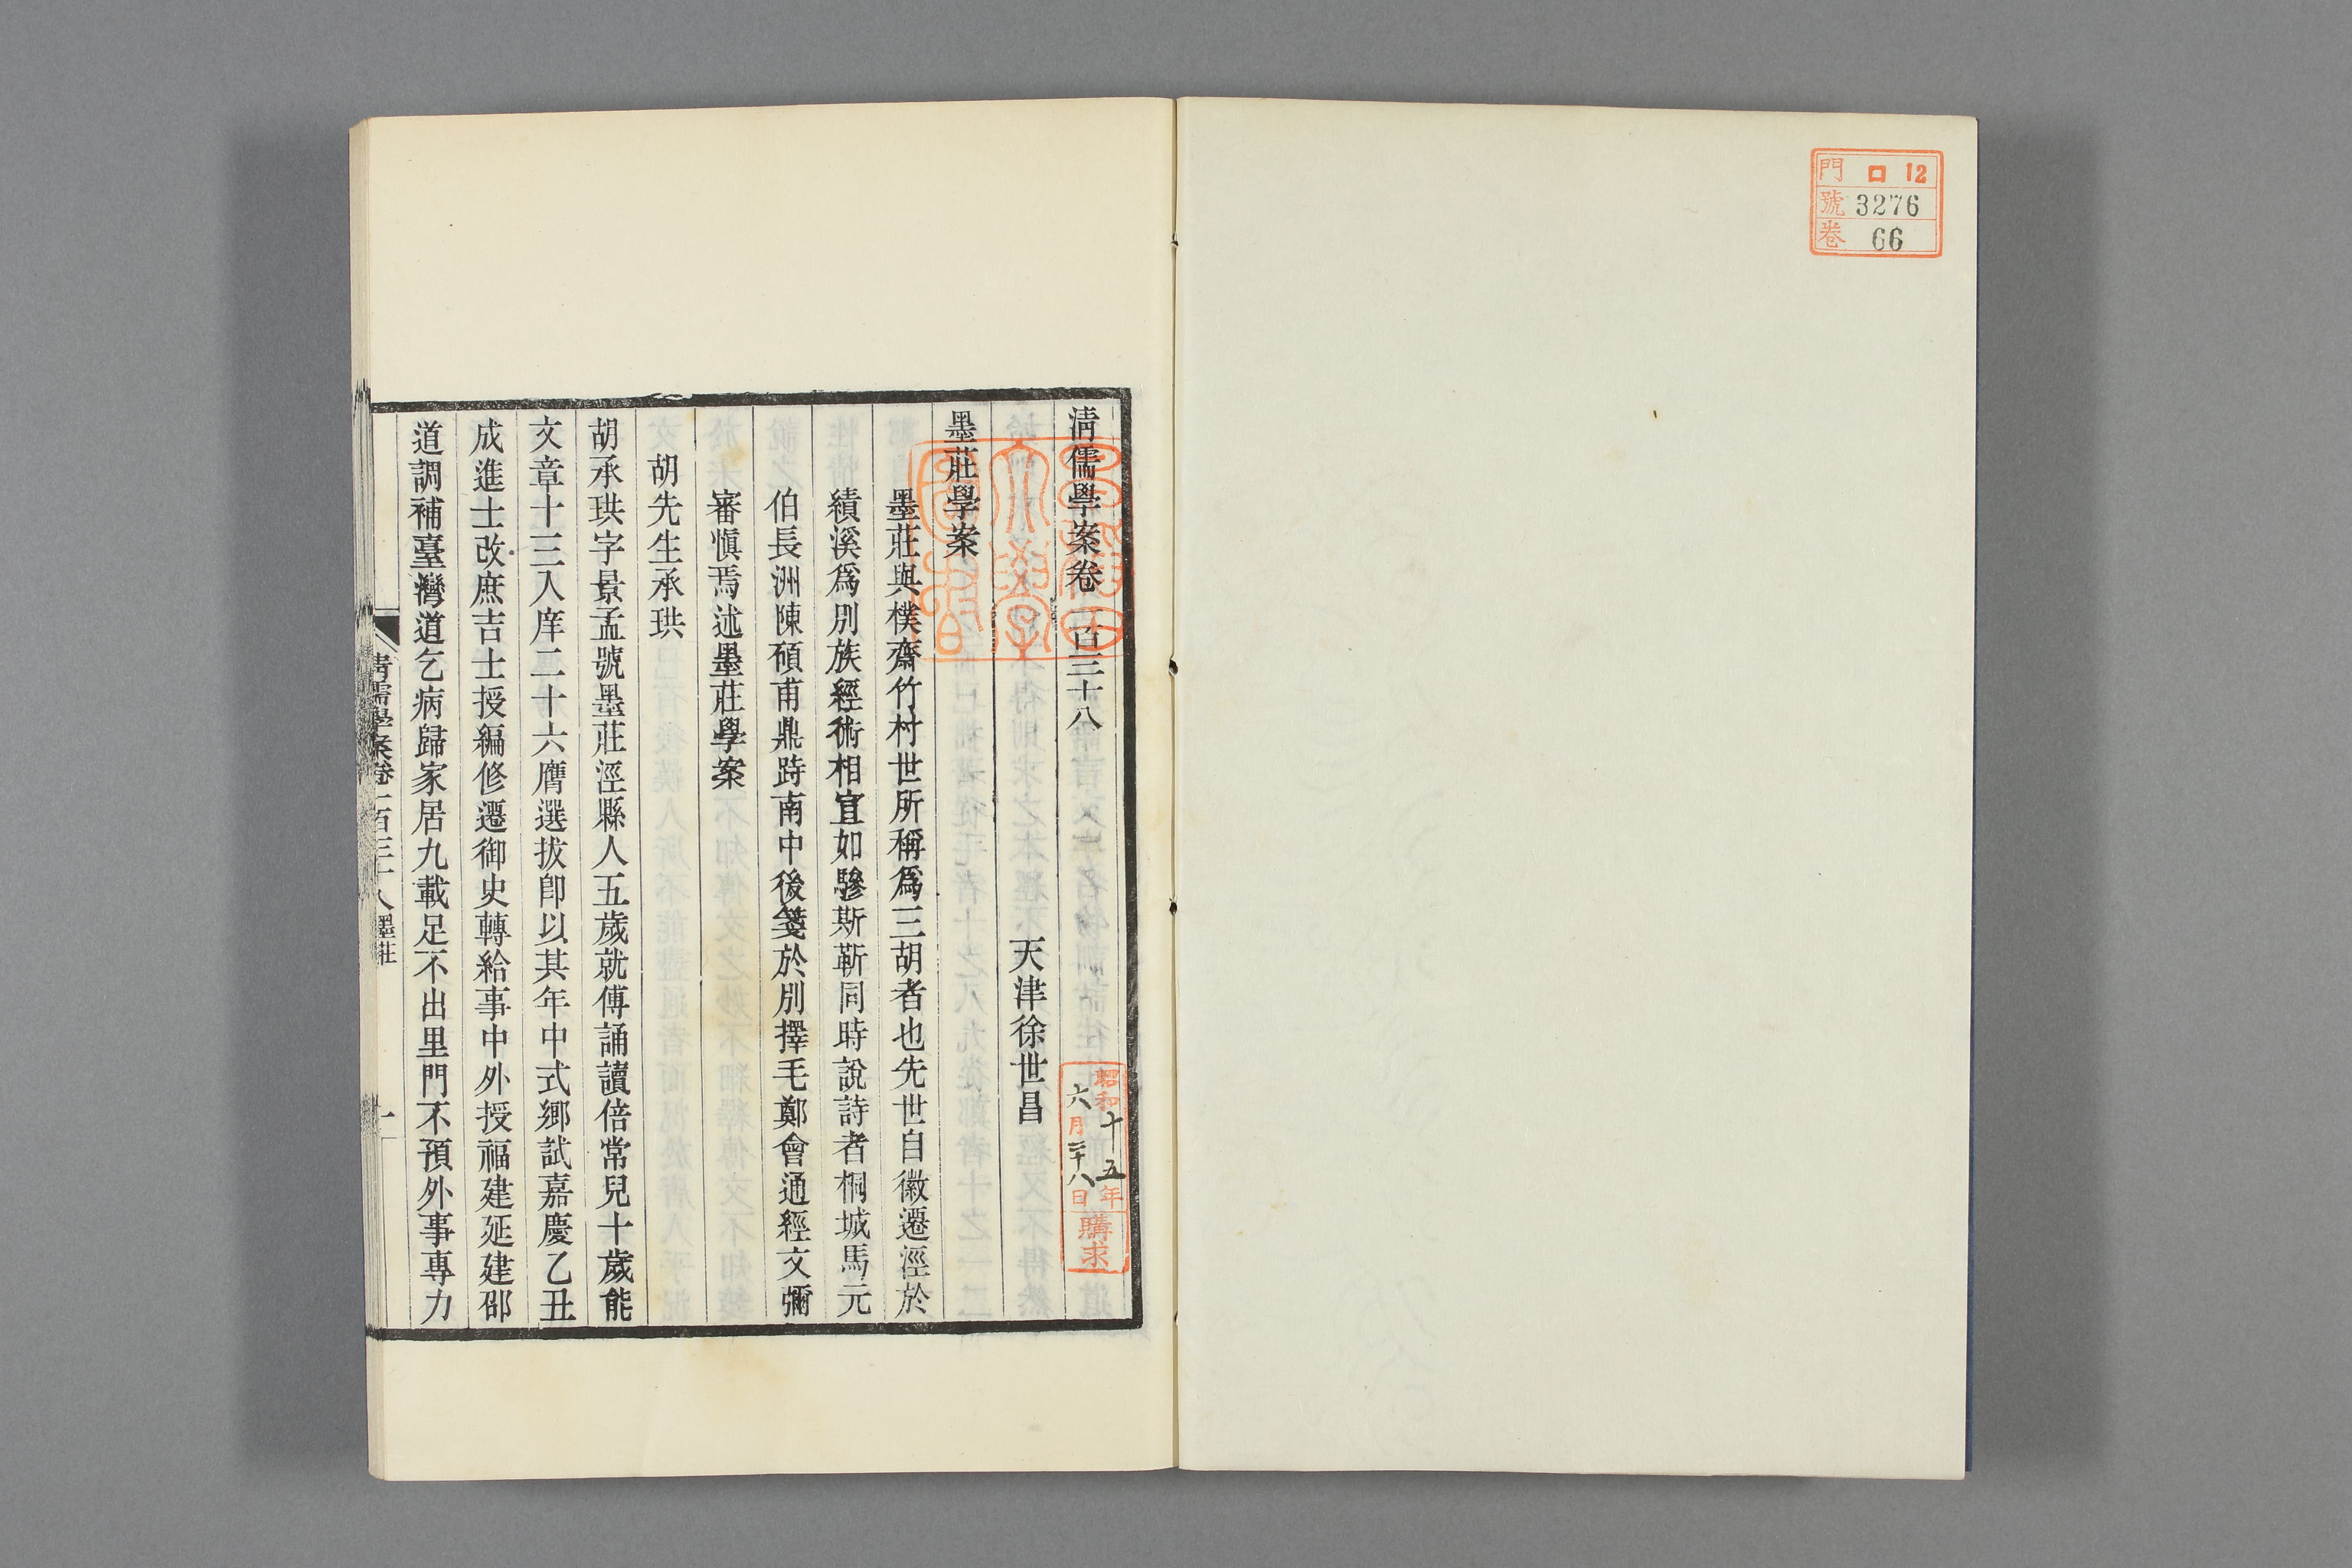 門 ロ 12
號 3276
卷 66
清儒學案卷一百三十八
天津徐世昌
墨莊學案
墨莊與樸齋竹村世所稱爲三胡者也先世自徽遷涇於
績溪爲別族經術相宜如驂斯靳同時說詩者桐城馬元
伯長洲陳碩甫鼎跱南中後箋於別擇毛鄭會通經文彌
審愼焉述墨莊學案
胡先生承珙
胡承珙字景孟號墨莊涇縣人五歲就傅誦讀倍常兒十歲能
文章十三入庠二十六膺選拔卽以其年中式鄉試嘉慶乙丑
成進士改庶吉士授編修遷御史轉給事中外授福建延建邵
道調補臺灣道乞病歸家居九載足不出里門不預外事專力
清儒學案卷一百三十八 墨莊
一
昭和十五年
六月二十八日
購求